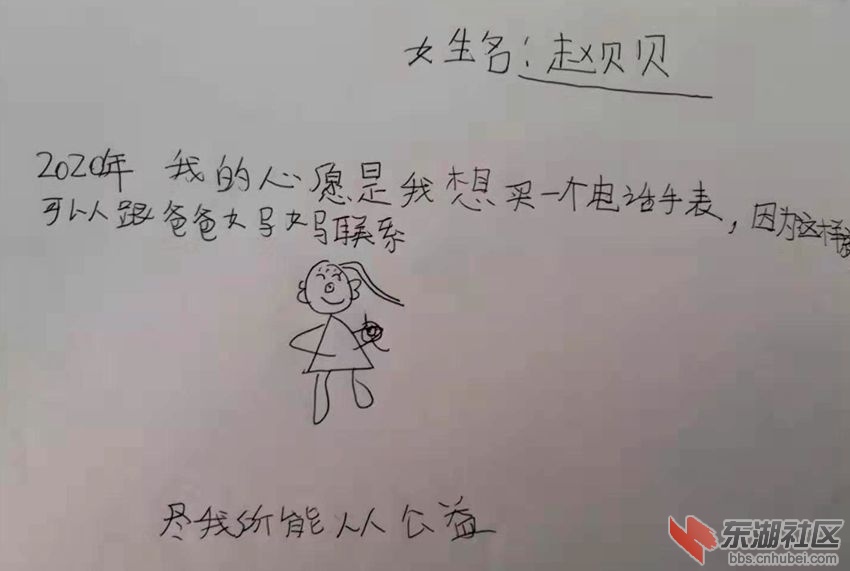 女生名：赵贝贝
2020年 我的心愿是我想买一个电话手表，因为这样
可以人跟爸爸妈妈联系
尽我所能 从公益
东湖社区
bbs.cnhubei.com